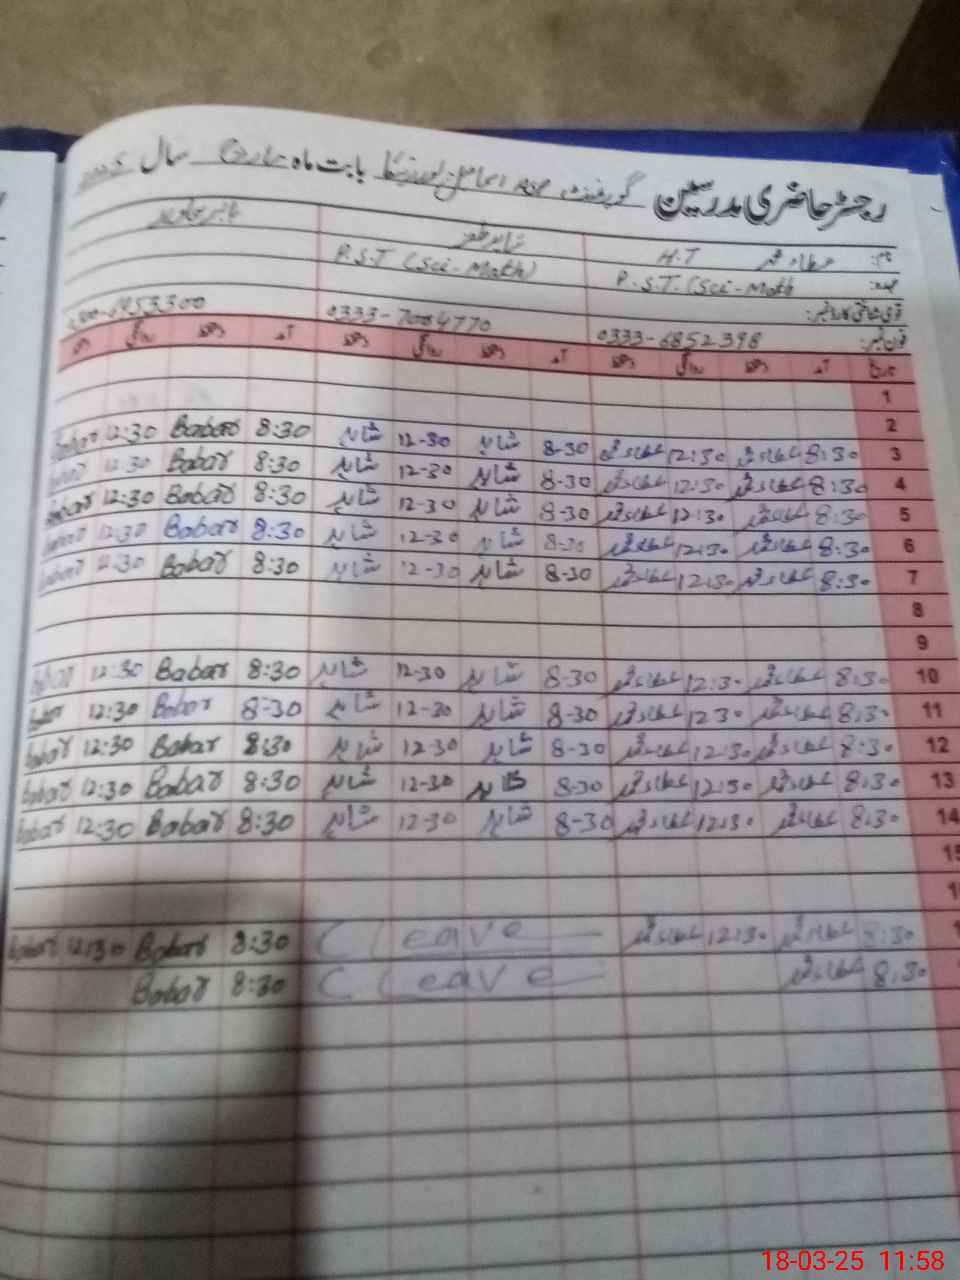 رجسٹر حاضری مدرسین گورنمنٹ بابت ماہ مارچ سال
نام: عطاء محمد H.T شاہد ظفر بابر جاوید
عہدہ: P.S.T. (Sci-Math P.S.T (Sci-Math)
قومی شناختی کارڈ نمبر:
فون نمبر: 0333-6852398 0333-7084770
تاریخ آمد دستخط روانگی دستخط آمد دستخط روانگی دستخط آمد دستخط روانگی دستخط
1
2
3 8:30 عطاء محمد 12:30 عطاء محمد 8-30 شاہد 12-30 شاہد 8:30 Babar 12:30 Babar
4 8:30 عطاء محمد 12:30 عطاء محمد 8-30 شاہد 12-30 شاہد 8:30 Babar 12:30 Babar
5 8:30 عطاء محمد 12:30 عطاء محمد 8-30 شاہد 12-30 شاہد 8:30 Babar 12:30 Babar
6 8:30 عطاء محمد 12:30 عطاء محمد 8-30 شاہد 12-30 شاہد 8:30 Babar 12:30 Babar
7 8:30 عطاء محمد 12:30 عطاء محمد 8-30 شاہد 12-30 شاہد 8:30 Babar 12:30 Babar
8
9
10 8:30 عطاء محمد 12:30 عطاء محمد 8-30 شاہد 12-30 شاہد 8:30 Babar 12:30 Babar
11 8:30 عطاء محمد 12:30 عطاء محمد 8-30 شاہد 12-30 شاہد 8-30 Babar 12:30 Babar
12 8:30 عطاء محمد 12:30 عطاء محمد 8-30 شاہد 12-30 شاہد 8:30 Babar 12:30 Babar
13 8:30 عطاء محمد 12:30 عطاء محمد 8-30 شاہد 12-30 شاہد 8:30 Babar 12:30 Babar
14 8:30 عطاء محمد 12:30 عطاء محمد 8-30 شاہد 12-30 شاہد 8:30 Babar 12:30 Babar
15
1
1 8:30 عطاء محمد 12:30 عطاء محمد C Leave 8:30 Babar 12:30 Babar
8:30 عطاء محمد C Leave 8:30 Babar
18-03-25 11:58